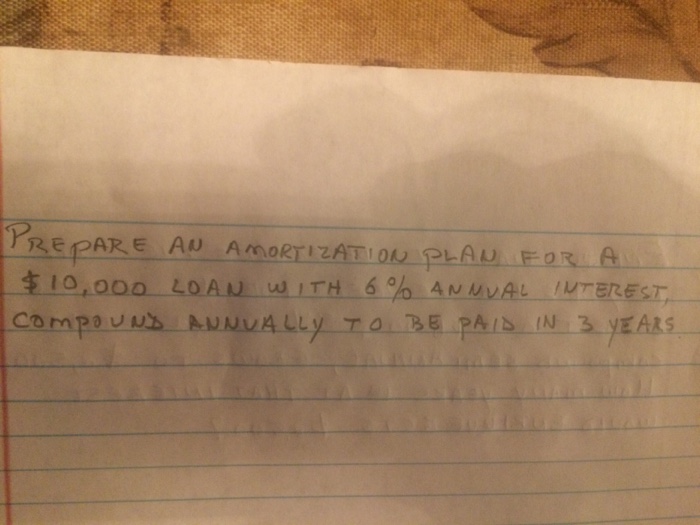 PREPARE AN AMORTIZATION PLAN FOR A
$10,000 LOAN WITH 6% ANNUAL INTEREST,
COMPOUND ANNUALLY TO BE PAID IN 3 YEARS